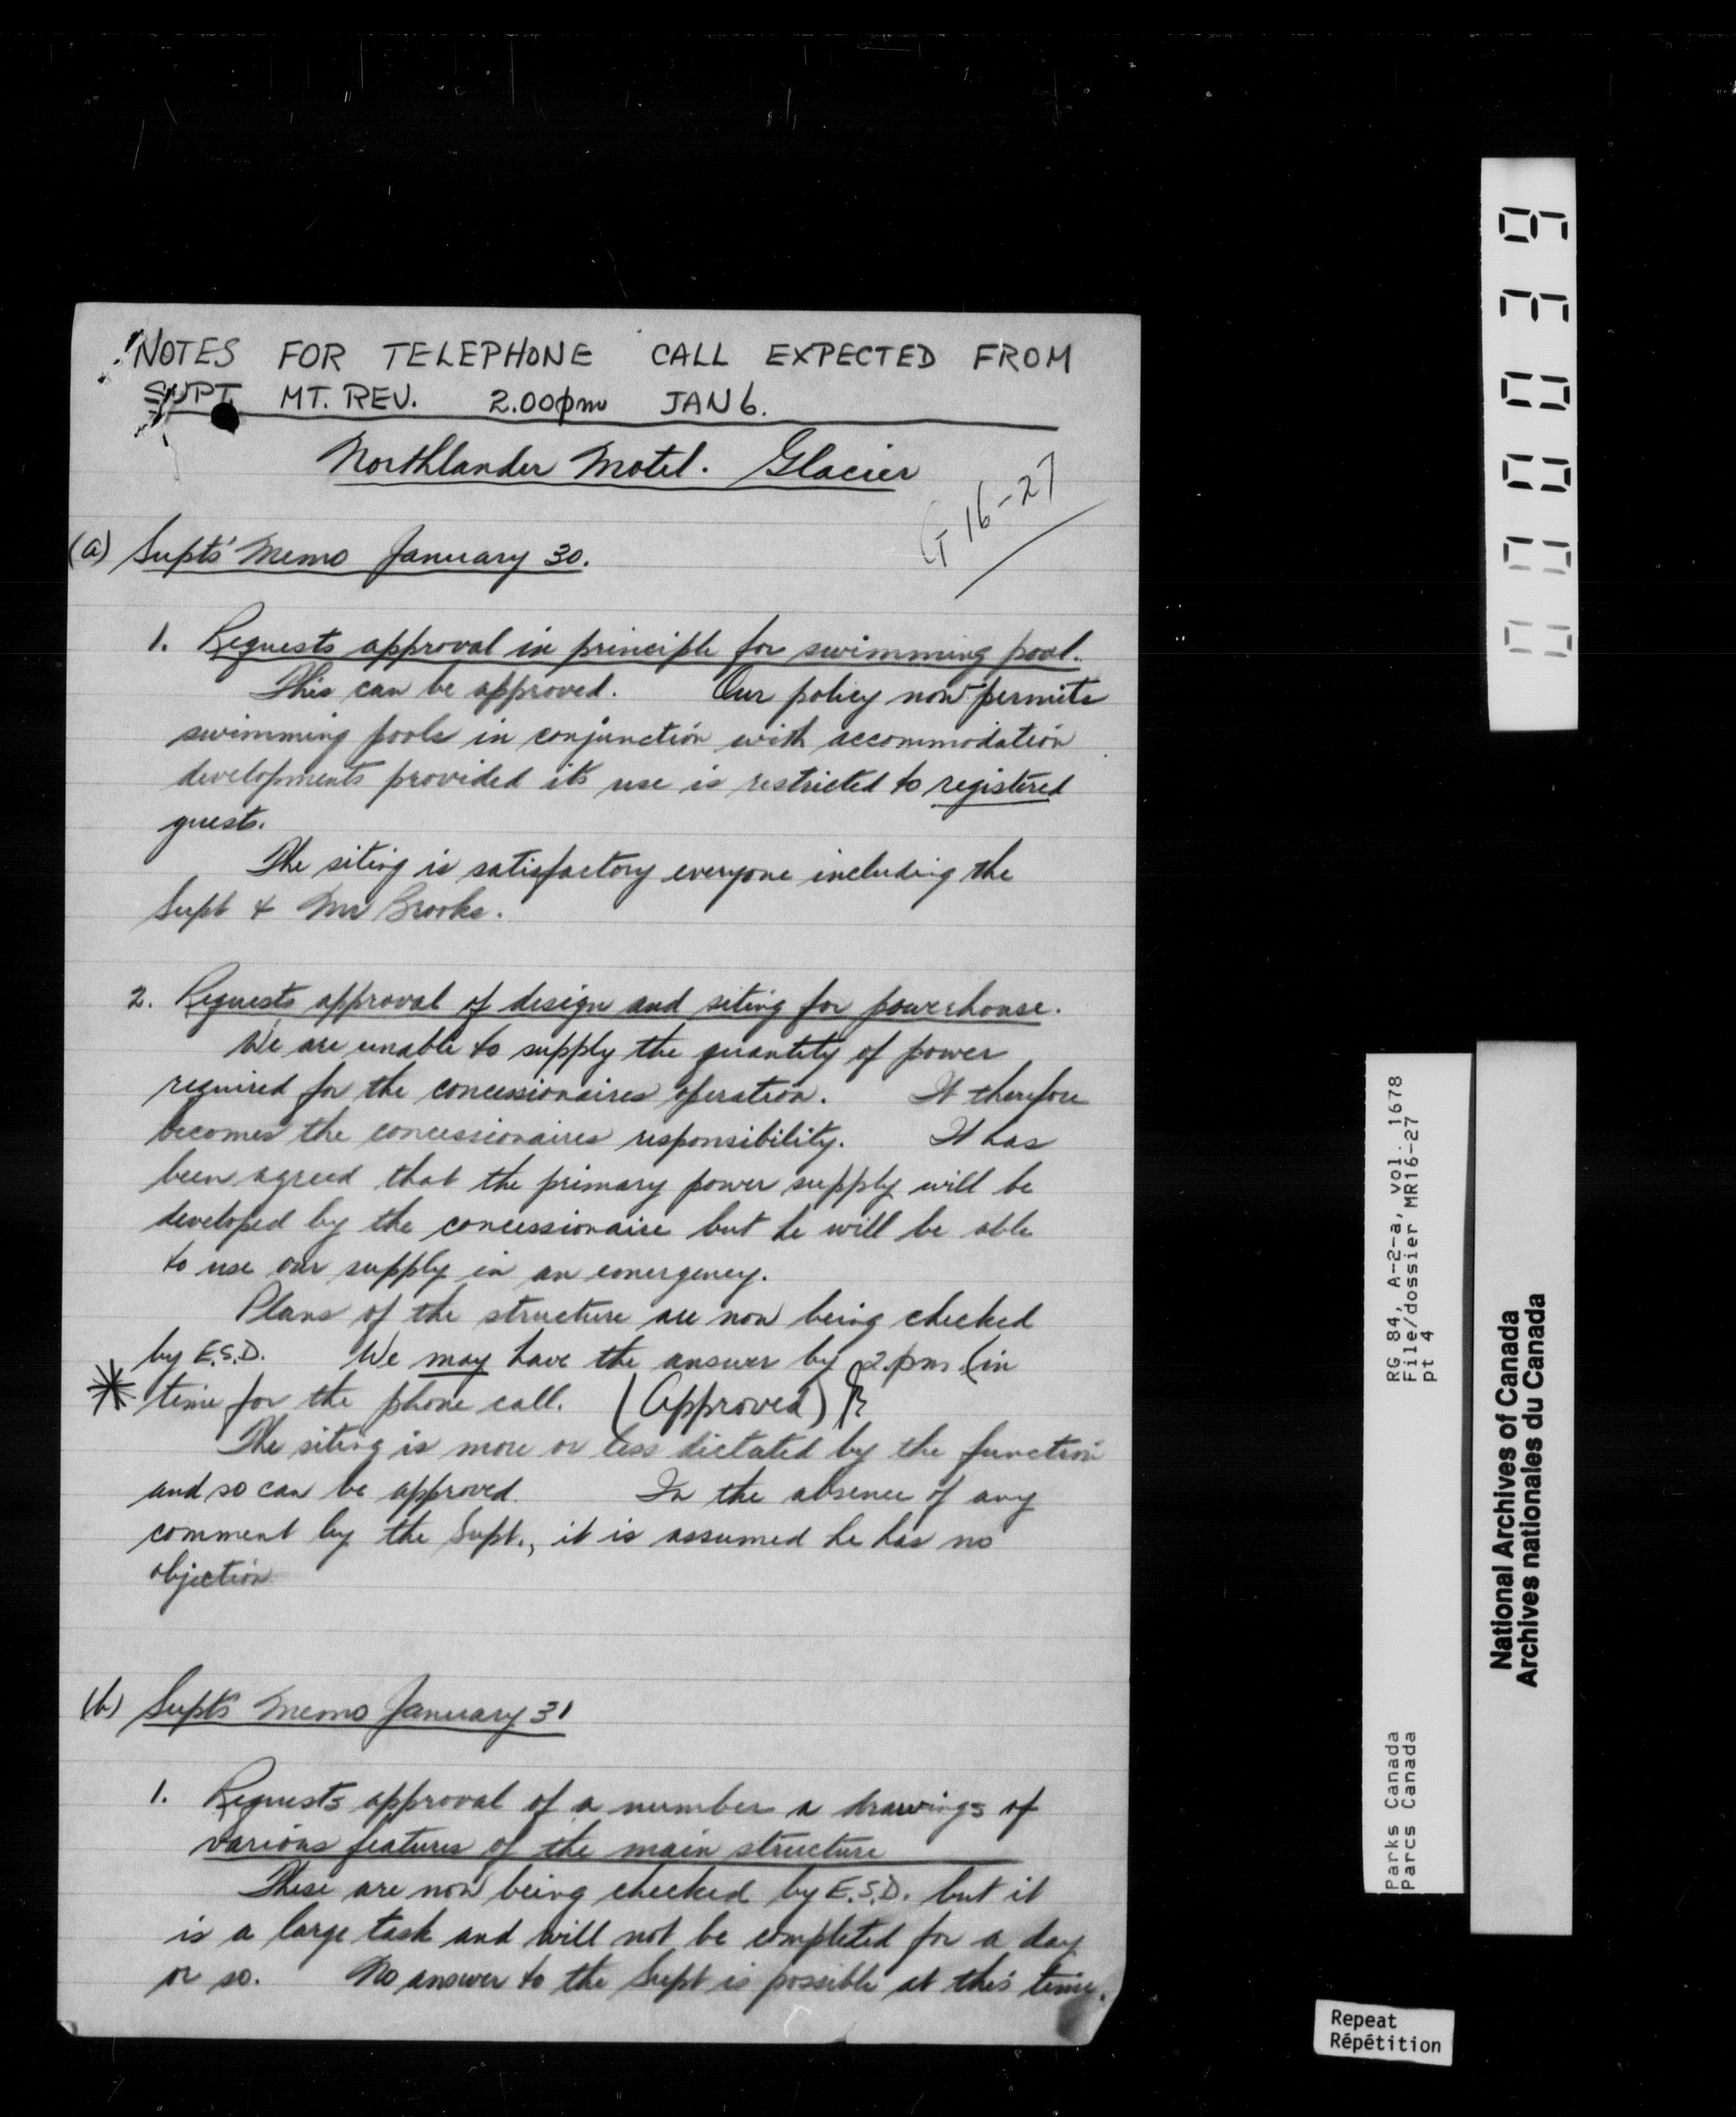 NOTES FOR TELEPHONE CALL EXPECTED FROM
SUPT. MT. REV. 2.00pm JAN 6.
Northlander Motel. Glacier
G 16-27
(a) Supts' Memo January 30.
1. Requests approval in principle for swimming pool.
This can be approved. Our policy now permits
swimming pools in conjunction with accommodation
developments provided its use is restricted to registered
guests.
The siting is satisfactory everyone including the
Supt & Mr Brooks.
2. Requests approval of design and siting for powerhouse.
We are unable to supply the quantity of power
required for the concessionaires operation. It therefore
becomes the concessionaires responsibility. It has
been agreed that the primary power supply will be
developed by the concessionaire but he will be able
to use our supply in an emergency.
Plans of the structure are now being checked
by E.S.D. We may have the answer by 2.pm (in
* time for the phone call. (Approved)
The siting is more or less dictated by the function
and so can be approved. In the absence of any
comment by the Supt., it is assumed he has no
objection
(b) Supts Memo January 31
1. Requests approval of a number a drawings of
various features of the main structure
These are now being checked by E.S.D. but it
is a large task and will not be completed for a day
or so. No answer to the Supt is possible at this time.
000039
RG 84, A-2-a, vol. 1678
File/dossier MR16-27
pt 4
Parks Canada
Parcs Canada
National Archives of Canada
Archives nationales du Canada
Repeat
Répétition